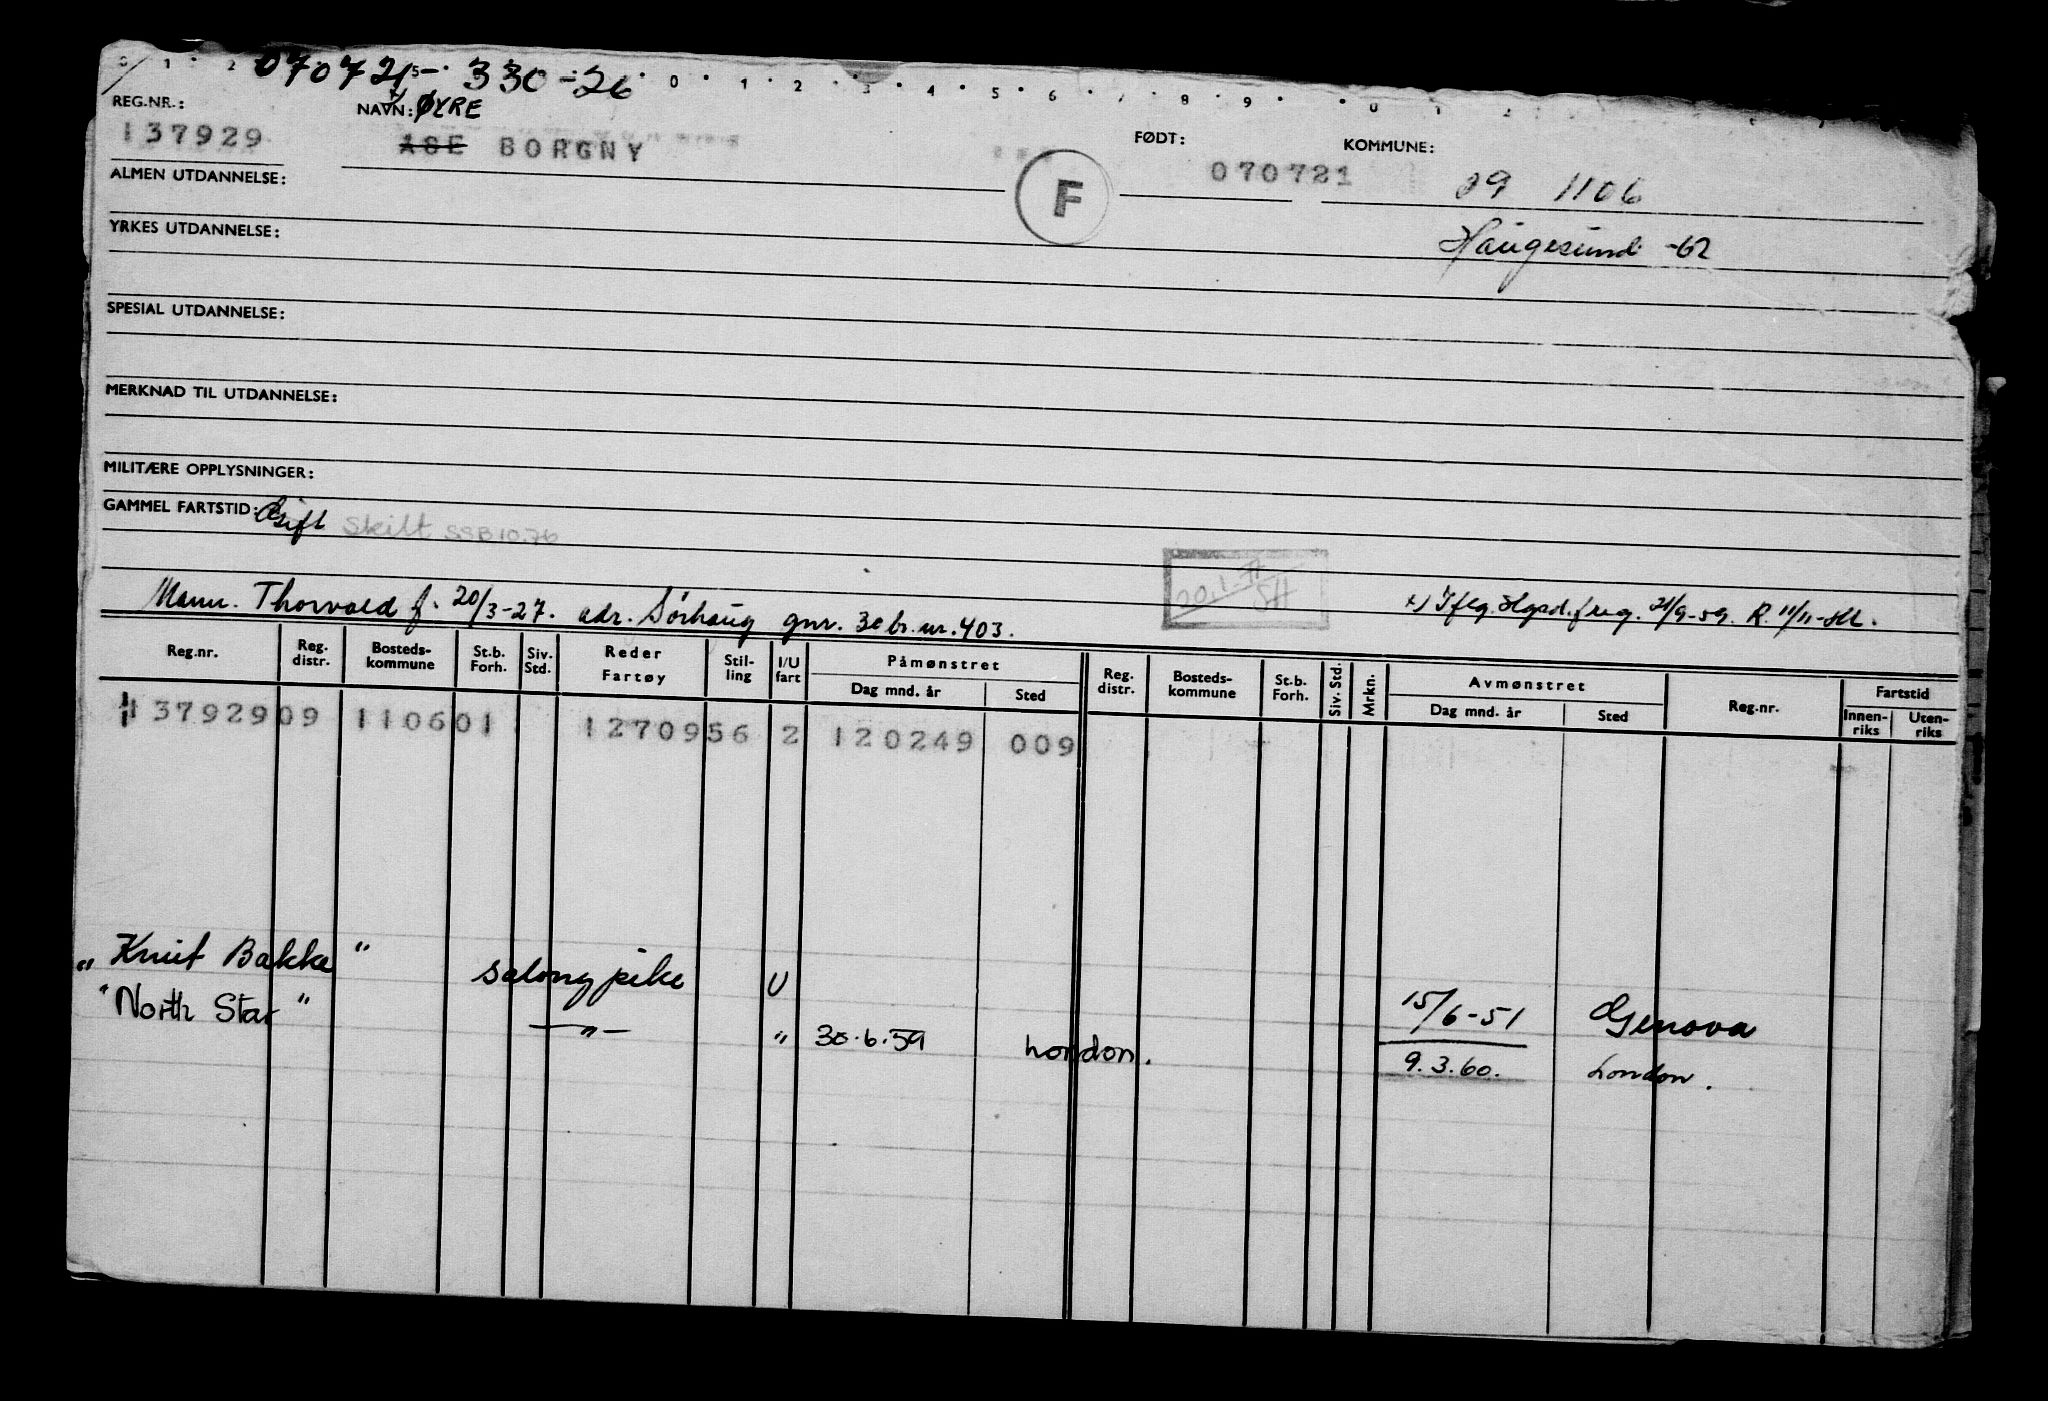 070721 - 330 - 26
REG.NR.: NAVN: ØYRE FØDT: KOMMUNE:
137929 ASE BORGNY F 070721 09 1106
ALMEN UTDANNELSE:
Haugesund -62
YRKES UTDANNELSE:
SPESIAL UTDANNELSE:
MERKNAD TIL UTDANNELSE:
MILITÆRE OPPLYSNINGER:
GAMMEL FARTSTID: Gift Skilt SSB 10.76
Mann. Thorvald f. 20/3-27. adr. Sørhaug gnr. 30 br.nr. 403.
x) Iflg. Hgsd. freg. 21/9-59. R. 11/11-
Reg.nr. Reg. distr. Bosteds-kommune St.b. Forh. Siv. Std. Reder Fartøy Stil-ling I/U fart Påmønstret Dag mnd. år Sted Reg. distr. Bosteds-kommune St.b. Forh. Siv. Std. Mrkn. Avmønstret Dag mnd. år Sted Reg.nr. Fartstid Innen-riks Uten-riks
137929 09 1106 01 1270956 2 120249 009
"Knut Bakke" salongpike U 15/6-51 Genova
"North Star" —"— " 30.6.59 London. 9.3.60. London.